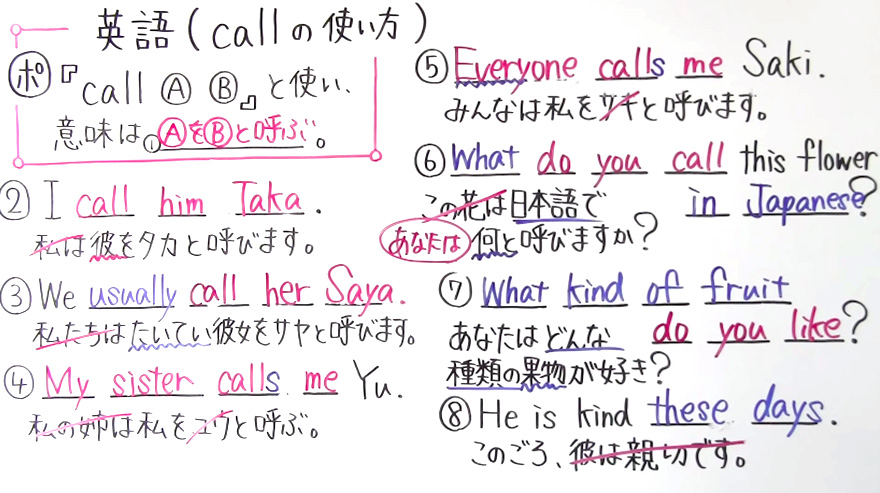 英語(callの使い方)
ポ『call Ⓐ Ⓑ』と使い、
意味は①ⒶをⒷと呼ぶ。
② I call him Taka.
私は彼をタカと呼びます。
③ We usually call her Saya.
私たちはたいてい彼女をサヤと呼びます。
④ My sister calls me Yu.
私の姉は私をユウと呼ぶ。
⑤ Everyone calls me Saki.
みんなは私をサキと呼びます。
⑥ What do you call this flower
in Japanese?
この花は日本語で
あなたは何と呼びますか?
⑦ What kind of fruit
do you like?
あなたはどんな
種類の果物が好き?
⑧ He is kind these days.
このごろ、彼は親切です。